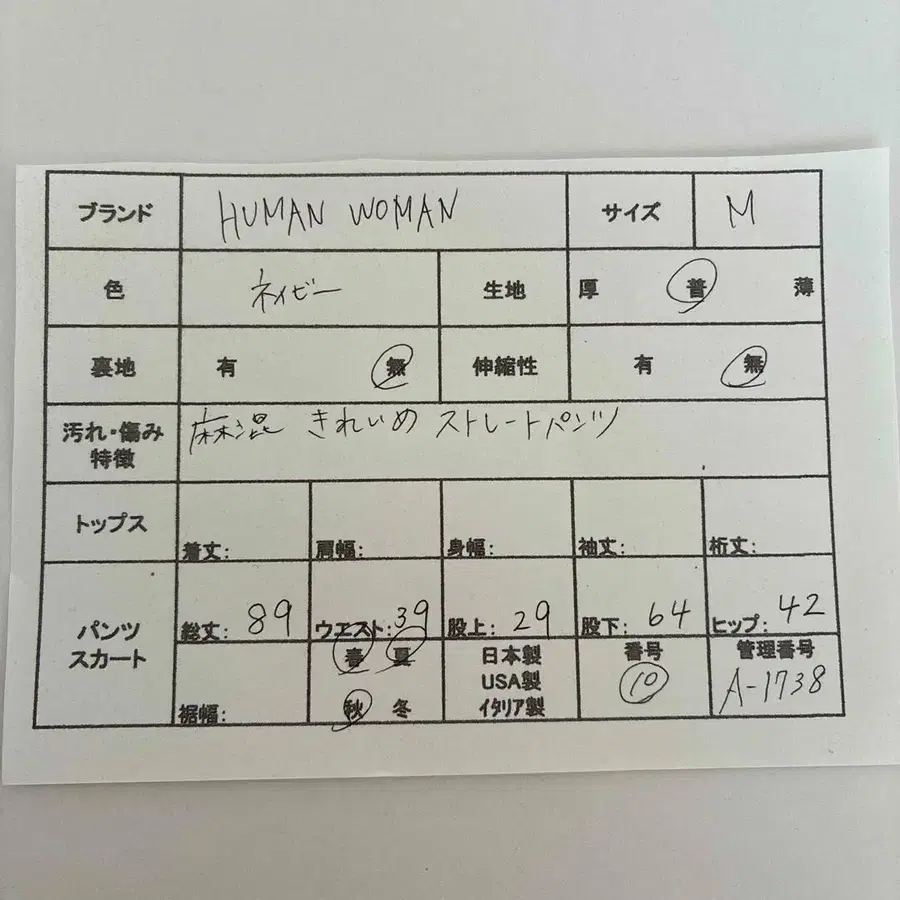 ブランド HUMAN WOMAN サイズ M
色 ネイビー 生地 厚 普 薄
裏地 有 無 伸縮性 有 無
汚れ・傷み 麻混 きれいめ ストレートパンツ
特徴
トップス 着丈: 肩幅: 身幅: 袖丈: 裄丈:
パンツ スカート 総丈: 89 ウエスト: 39 股上: 29 股下: 64 ヒップ: 42
裾幅: 春 夏 秋 冬 日本製 USA製 イタリア製 番号 10 管理番号 A-1738